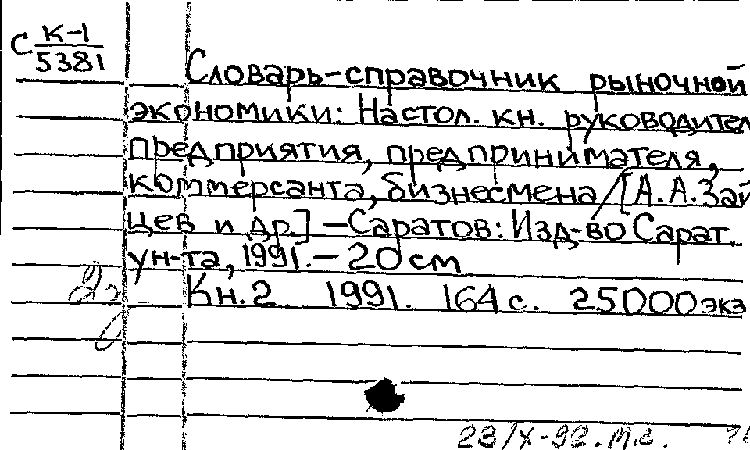 С К-1
5381
Словарь-справочник рыночной
экономики: Настол. кн. руководител
предприятия, предпринимателя,
коммерсанта, бизнесмена /[А.А.Зай
цев и др.] – Саратов: Изд-во Сарат.
ун-та, 1991. – 20 см
Кн.2 1991. 164 с. 25000 экз